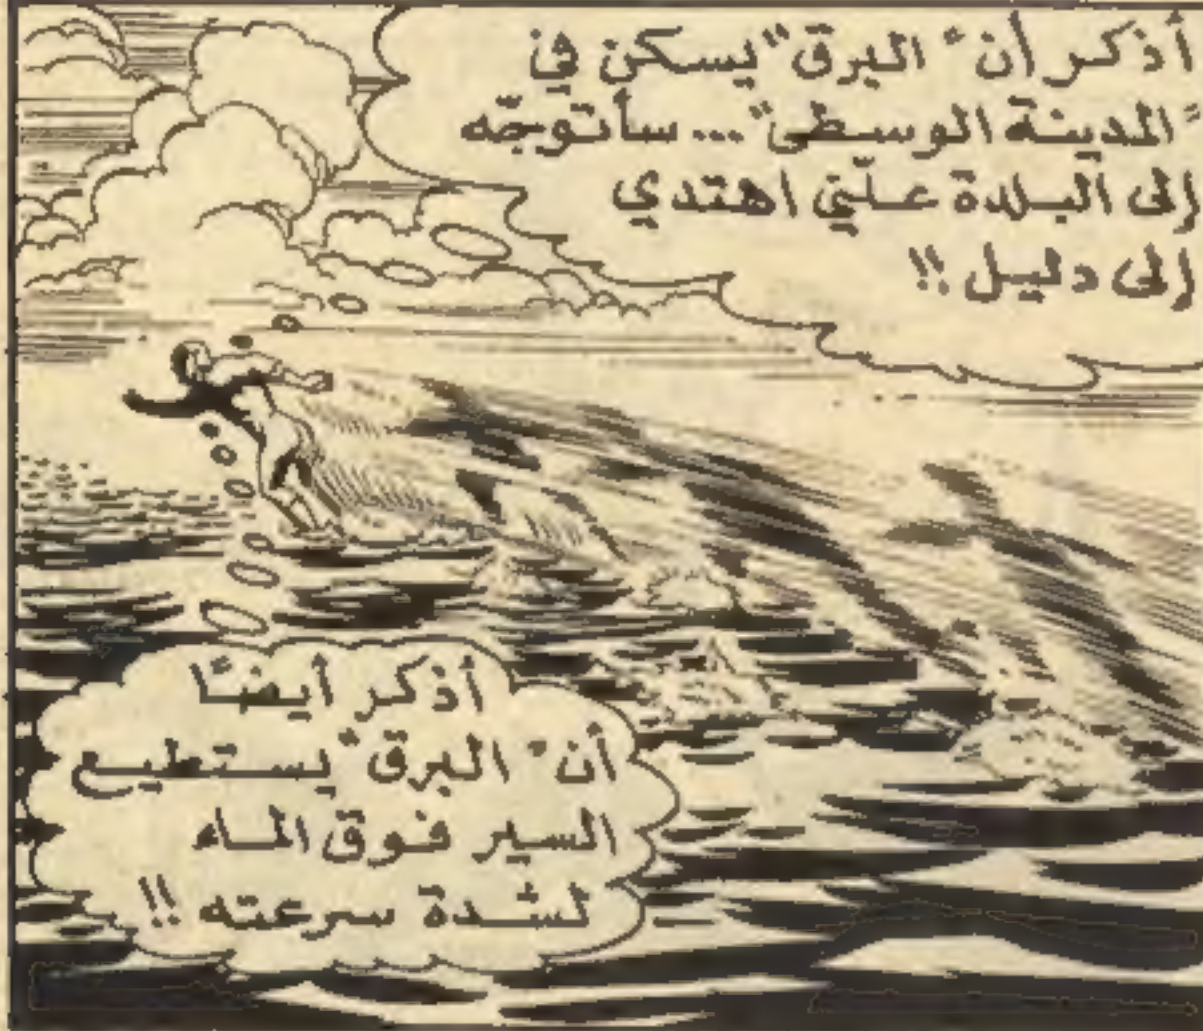 أذكر أن "البرق" يسكن في
"المدينة الوسطى"... سأتوجّه
إلى البلدة علّني اهتدي
إلى دليل !!
أذكر أيضًا
أن "البرق" يستطيع
السير فوق الماء
لشدة سرعته !!